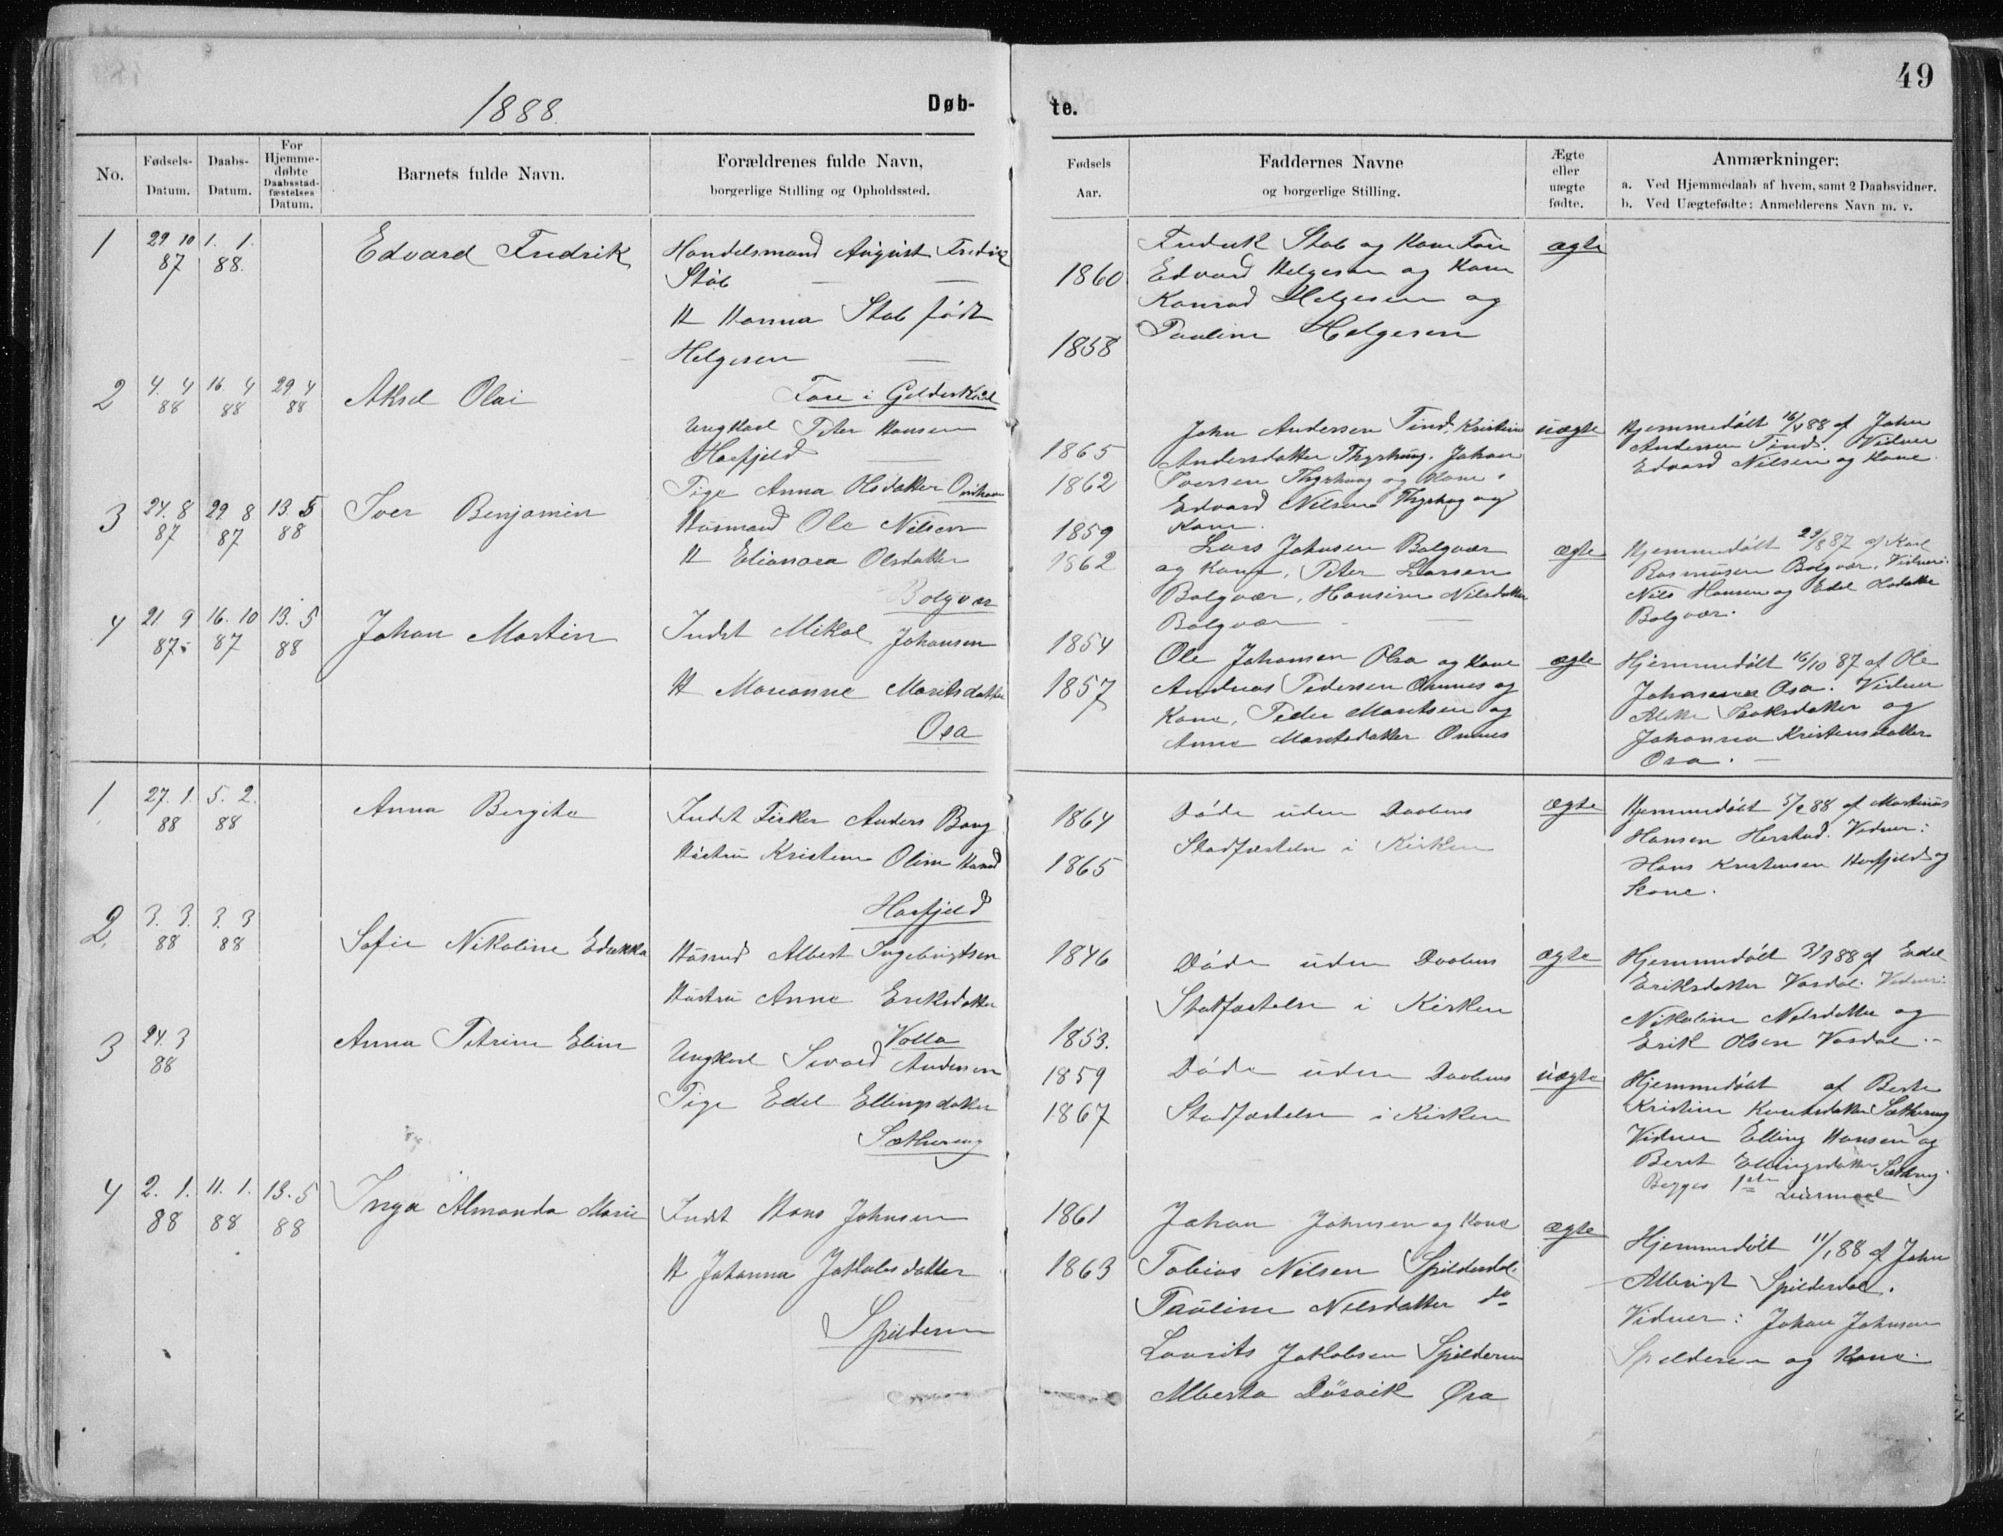 49
1888.
Døb-
te.
No.
Fødsels-
Datum.
Daabs-
Datum.
For
Hjemme-
døbte
Daabsstad-
fæstelses
Datum.
Barnets fulde Navn.
Forældrenes fulde Navn,
borgerlige Stilling og Opholdssted.
Fødsels
Aar.
Faddernes Navne
og borgerlige Stilling.
Ægte
eller
uægte
fødte.
Anmærkninger:
a. Ved Hjemmedaab af hvem, samt 2 Daabsvidner.
b. Ved Uægtefødte: Anmelderens Navn m. v.
1
29 10
87
1. 1.
88.
Edvard Fredrik
Handelsmand August Fredrik
Støb
H Hanna Støb født
Helgesen
Fore i Gildeskaal
1860
1858
Fredrik Støb og Kone Fore
Edvard Helgesen og Kone
Konrad Helgesen og
Pauline Helgesen
ægte
2
4. 4
88
16 4
88
29 4
88
Aksel Olai
Ungkarl Peter Hansen
Harfjeld
Pige Anna Olsdatter
1865
1862
John Andersen Tind, Kristine
Andersdatter Thyshaug. Johan
Iversen Thyshaug og Kone.
Edvard Nilsen Thyshog og
Kone.
uægte
Hjemmedøbt 16/4 88 af John
Andersen Tind. Vidner
Edvard Nilsen og Kone.
3
24. 8
87
29. 8
87
13. 5
88
Iver Benjamin
Husmand Ole Nilsen
H Elianora Olsdatter
Bolgvær
1859
1862
Lars Johnsen Bolgvær
og Kone, Peter Larsen
Bolgvær, Hansine Nilsdatter
Bolgvær
ægte
Hjemmedøbt 29/8 87 af Karl
Rasmusen Bolgvær, Vidner:
Nils Hansen og Edel Olsdatter
Bolgvær.
4
21 9
87.
16. 10
87
13. 5
88
Johan Martin
Indst Mikal Johansen
H Marianne Moritsdatter
Osa
1854
1857
Ole Johansen Osa og Kone
Andreas Pedersen Omnes og
Kone, Peder Moritsen og
Anne Moritsdatter Omnes
ægte
Hjemmedøbt 16/10 87 af Ole
Johansen Osa. Vidner
Isaksdatter og
Johanna Kristensdatter
Osa.
1
27. 1.
88
5. 2.
88
Anna Bergite
Indst Fisker Anders Bang
Hustru Kristine Oline
Harfjeld
1864
1865
Døde uden Daabens
Stadfæstelse i Kirken
ægte
Hjemmedøbt 5/2 88 af Martinus
Hansen Herstad. Vidner:
Hans Kristensen Harfjeld og
Kone.
2.
3. 3.
88
3. 3
88
Sofie Nikoline
Husmd Albert Ingebrigtsen
Hustru Anne Eriksdatter
Valla
1846
1853.
Døde uden Daabens
Stadfæstelse i Kirken
ægte
Hjemmedøbt 3/3 88 af Edel
Eriksdatter Vasdal. Vidner:
Nikoline Nilsdatter og
Erik Olsen Vasdal.
3
24. 3
88
Anna Petrine Eline
Ungkarl Sivard Andersen
Pige Edel Ellingsdatter
Sætereng
1859
1867
Døde uden Daabens
Stadfæstelse i Kirken
uægte
Hjemmedøbt af Berte
Kristine
Vidner Elling Hansen og
Berit Ellingsdatter
Begges 1ste Leiermaal
4
2. 1.
88
11. 1.
88
13. 5
88
Inga Almanda Marie
Indst Hans Johnsen
H Johanna Jakobsdatter
Spilderen
1861
1863
Johan Johnsen og Kone
Tobias Nilsen Spilderdal.
Pauline Nilsdatter do
Laurits Jakobsen Spilderen
Alberta Døsvik Øra
ægte
Hjemmedøbt 11/1 88 af John
Albrigt Spilderdal.
Vidner: Johan Johnsen
Spilderen og Kone.